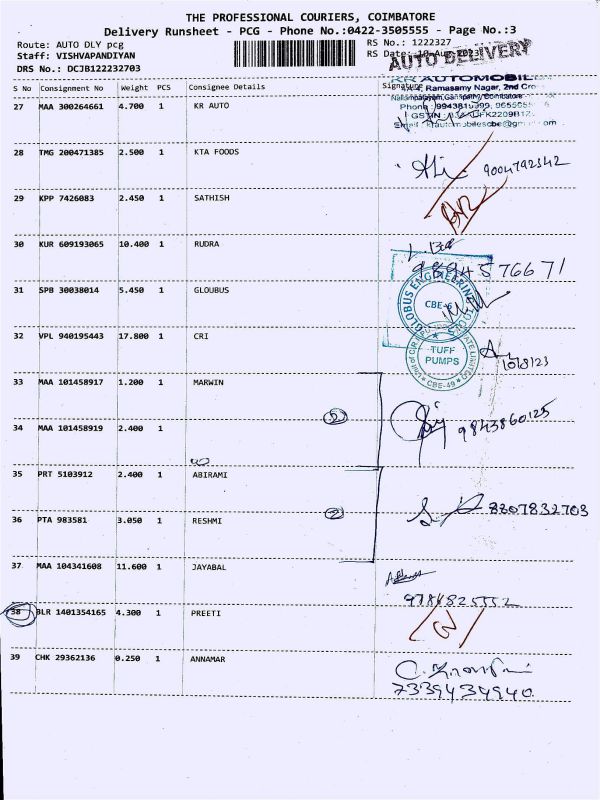 THE PROFESSIONAL COURIERS, COIMBATORE
Delivery Runsheet - PCG - Phone No.:0422-3505555 - Page No.:3
Route: AUTO DLY pcg RS No.: 1222327
Staff: VISHVAPANDIYAN RS Date: 10-Aug-2023
DRS No.: DCJB122232703
AUTO DELIVERY
S No Consignment No Weight PCS Consignee Details Signature
KR AUTOMOBIL
Ramasamy Nagar, 2nd Cro
27 MAA 300264661 4.700 1 KR AUTO
28 TMG 200471385 2.500 1 KTA FOODS
9004792342
29 KPP 7426083 2.450 1 SATHISH
30 KUR 609193065 10.400 1 RUDRA
9894576671
31 SPB 30038014 5.450 1 GLOUBUS
GLOBUS ENGINEERING TOOLS
CBE-6
32 VPL 940195443 17.800 1 CRI
TUFF
PUMPS
CBE-49
10/8/23
33 MAA 101458917 1.200 1 MARWIN
2
9843860125
34 MAA 101458919 2.400 1
35 PRT 5103912 2.400 1 ABIRAMI
36 PTA 983581 3.050 1 RESHMI
2
8207832703
37 MAA 104341608 11.600 1 JAYABAL
38 BLR 1401354165 4.300 1 PREETI
39 CHK 29362136 0.250 1 ANNAMAR
7339434940.